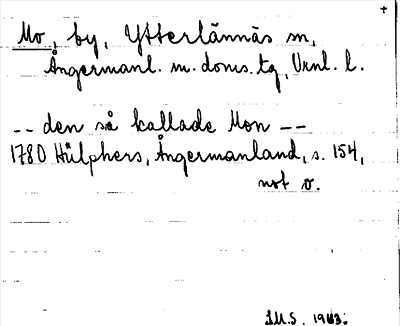 +
Mo, by, Ytterlännäs sn,
Ångermanl. m. doms. tg, Vrnl. l.
-- den så kallade Mon --
1780 Hülphers, Ångermanland, s. 154,
not v.
J.M.S. 1943.